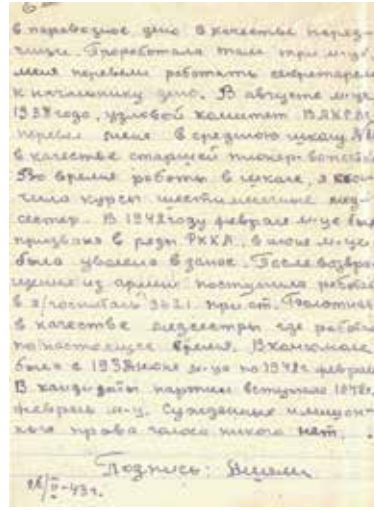 в паровозное депо в качестве
Проработала там три м-ца
меня перевели работать секретарем
к начальнику депо. В августе м-це
1938 года, узловой комитет ВЛКСМ
перевел меня в среднюю школу №
в качестве старшей пионер-вожатой
Во время работы в школе, я
курсы шестимесячные мед-
сестер. В 1942 году феврале м-це был
призвана в ряды РККА, в июне м-це
была уволена в запас. После возвра-
щения из армии поступила работать
в э/госпиталь 3621 при ст.
в качестве медсестры где работаю
по настоящее время. В комсомоле
была с 1938 июня м-ца по 1942г. февраль
В кандидаты партии вступила 1942г.
феврале м-це. Сужденных и лишон-
ных права голоса никого нет.
Подпись:
-43г.